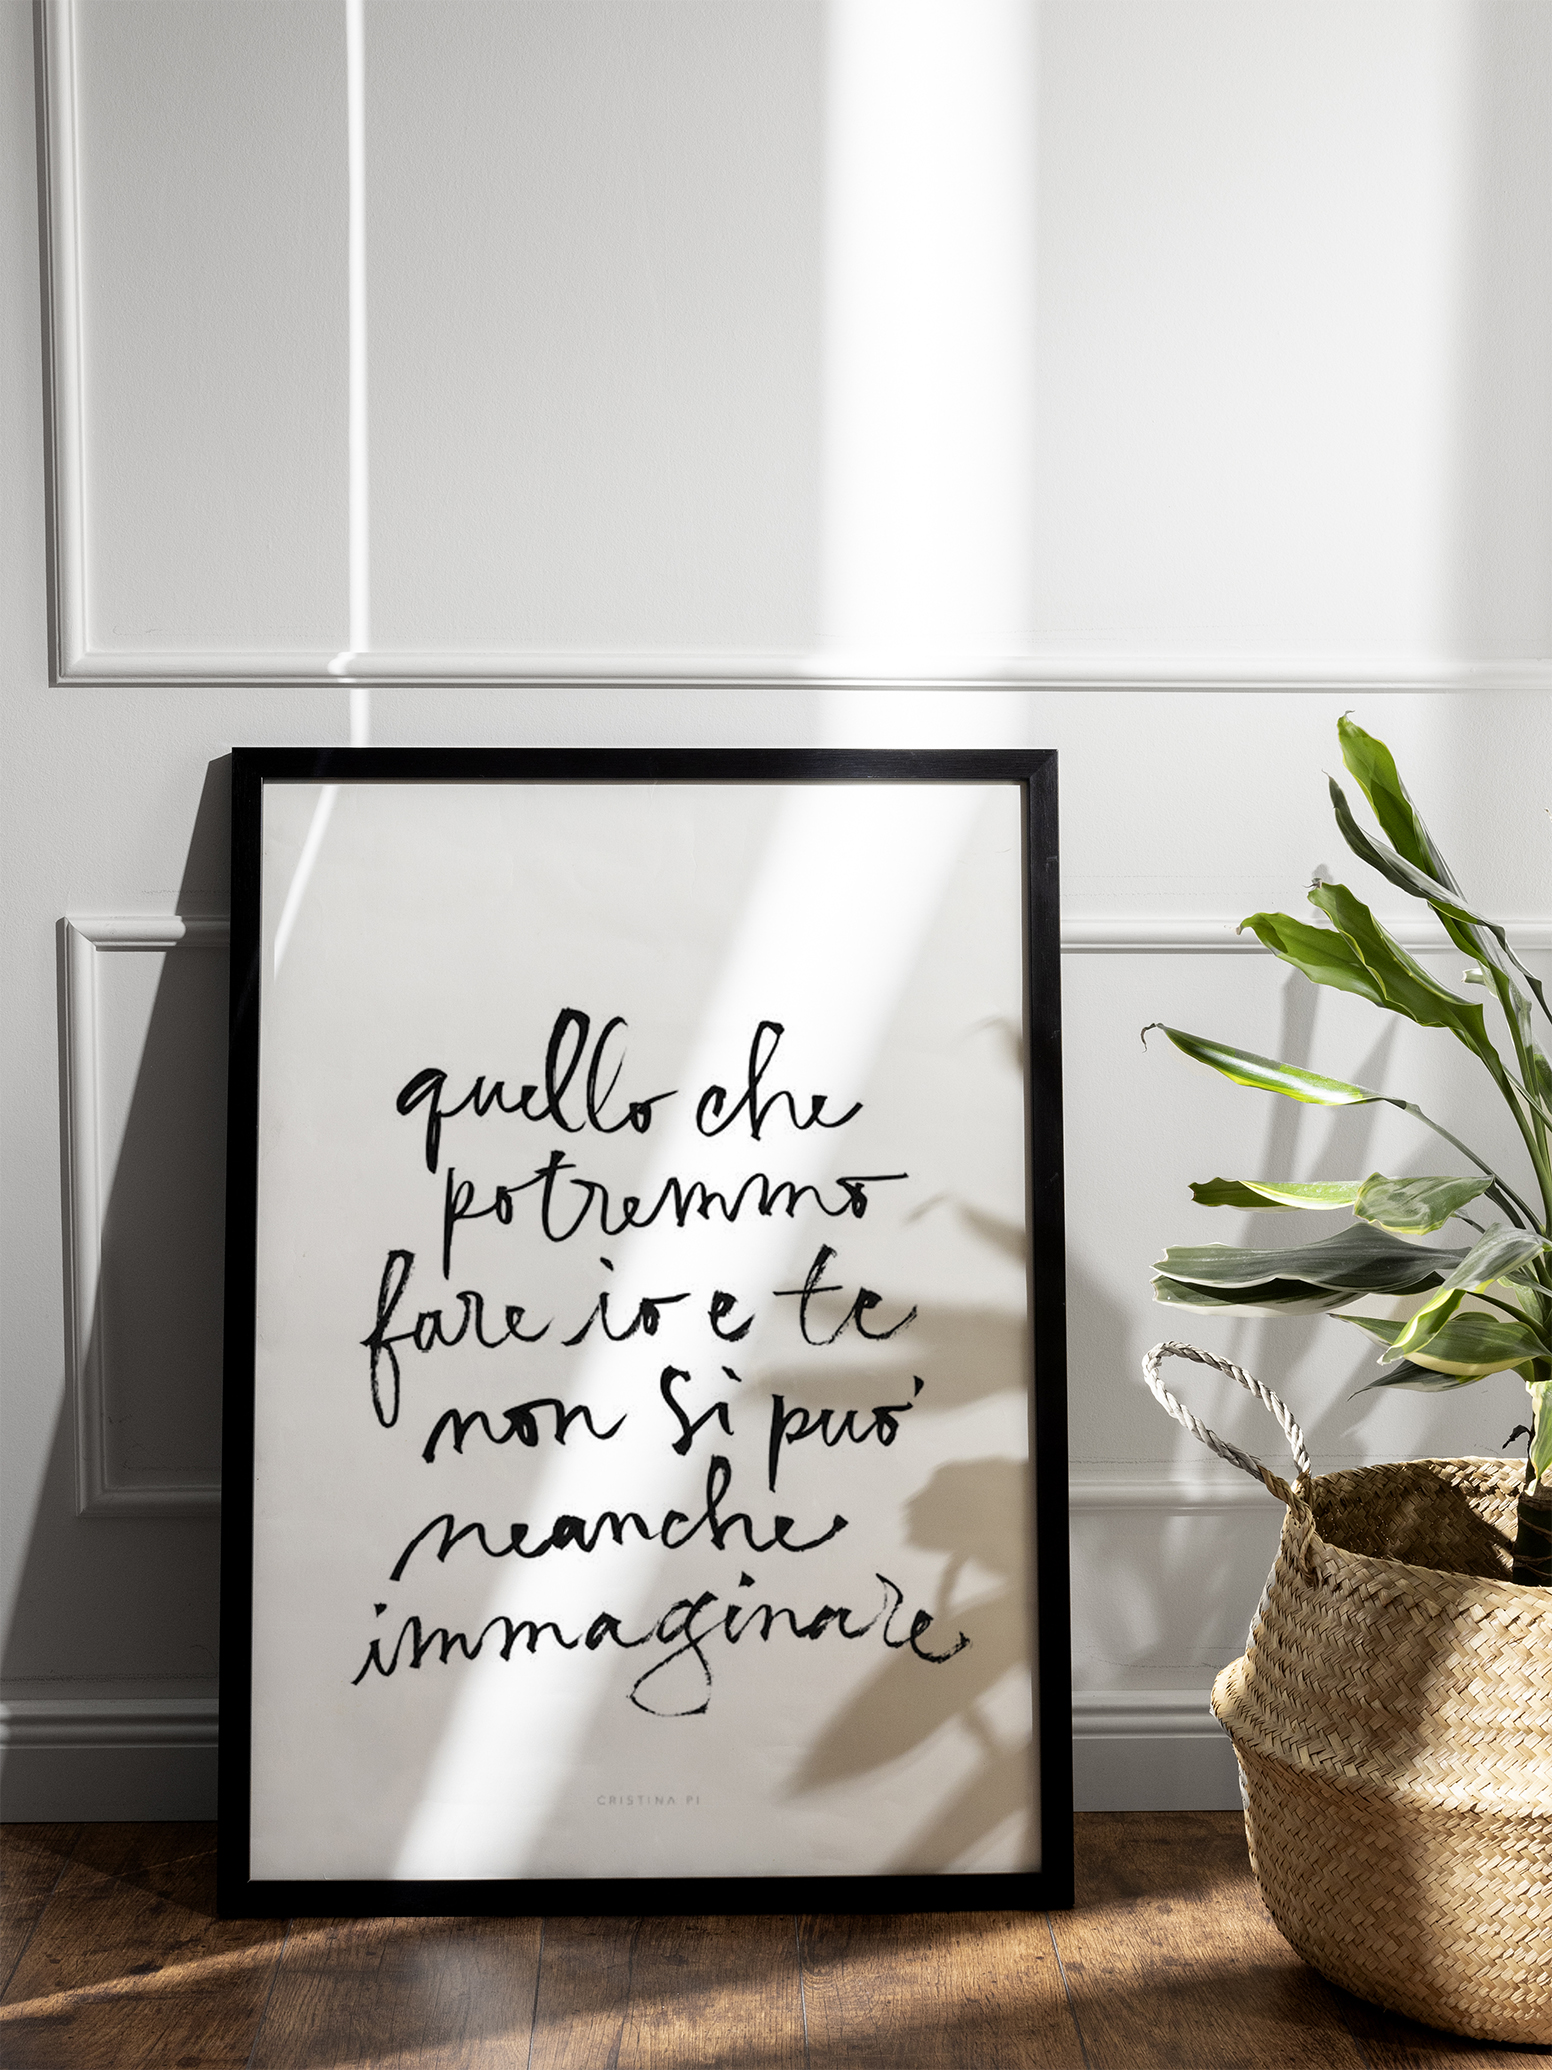 quello che
potremmo
fare io e te
non si può
neanche
immaginare
CRISTINA PI